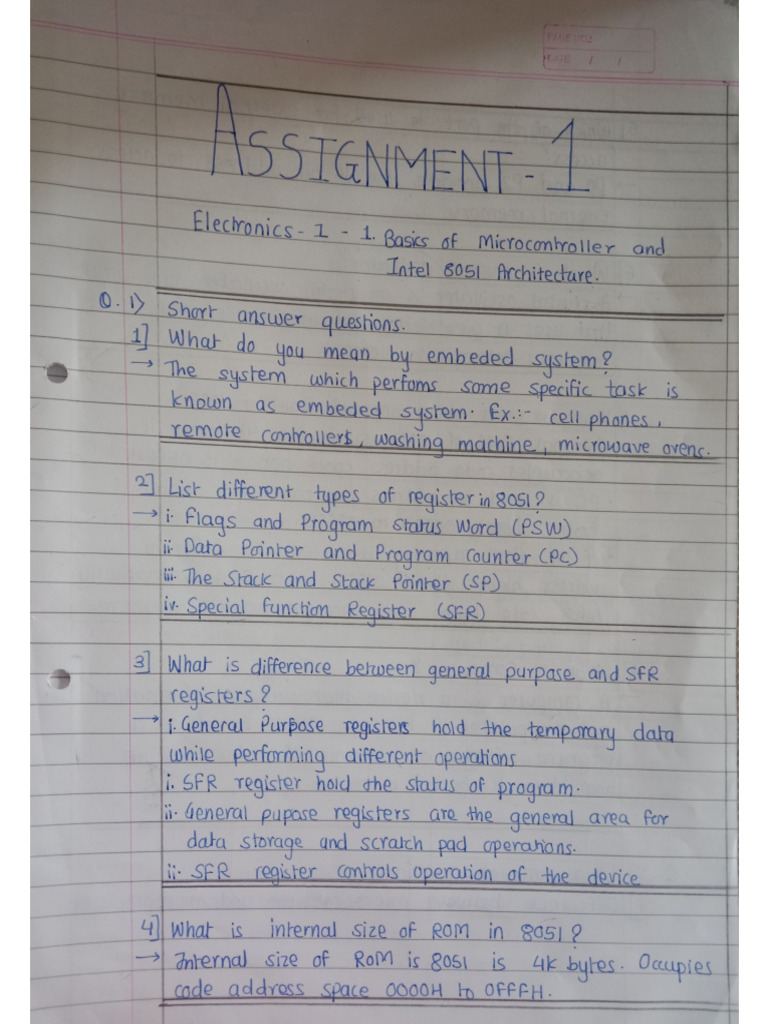 PAGE NO.
DATE / /
ASSIGNMENT-1
Electronics-1 - 1. Basics of Microcontroller and
Intel 8051 Architecture.
Q.1) Short answer questions.
1] What do you mean by embeded system?
→ The system which perfoms some specific task is
known as embeded system. Ex.:- cell phones,
remote controllers, washing machine, microwave ovens.
2] List different types of register in 8051?
→ i. Flags and Program Status Word (PSW)
ii. Data Pointer and Program Counter (PC)
iii. The Stack and Stack Pointer (SP)
iv. Special Function Register (SFR)
3] What is difference between general purpase and SFR
registers?
→ i. General Purpose registers hold the temporary data
while performing different operations
i. SFR register hold the status of program.
ii. General pupose registers are the general area for
data storage and scratch pad operations.
ii. SFR register controls operation of the device
4] What is internal size of ROM in 8051?
→ Internal size of ROM is 8051 is 4K bytes. Occupies
code address space 0000H to 0FFFH.